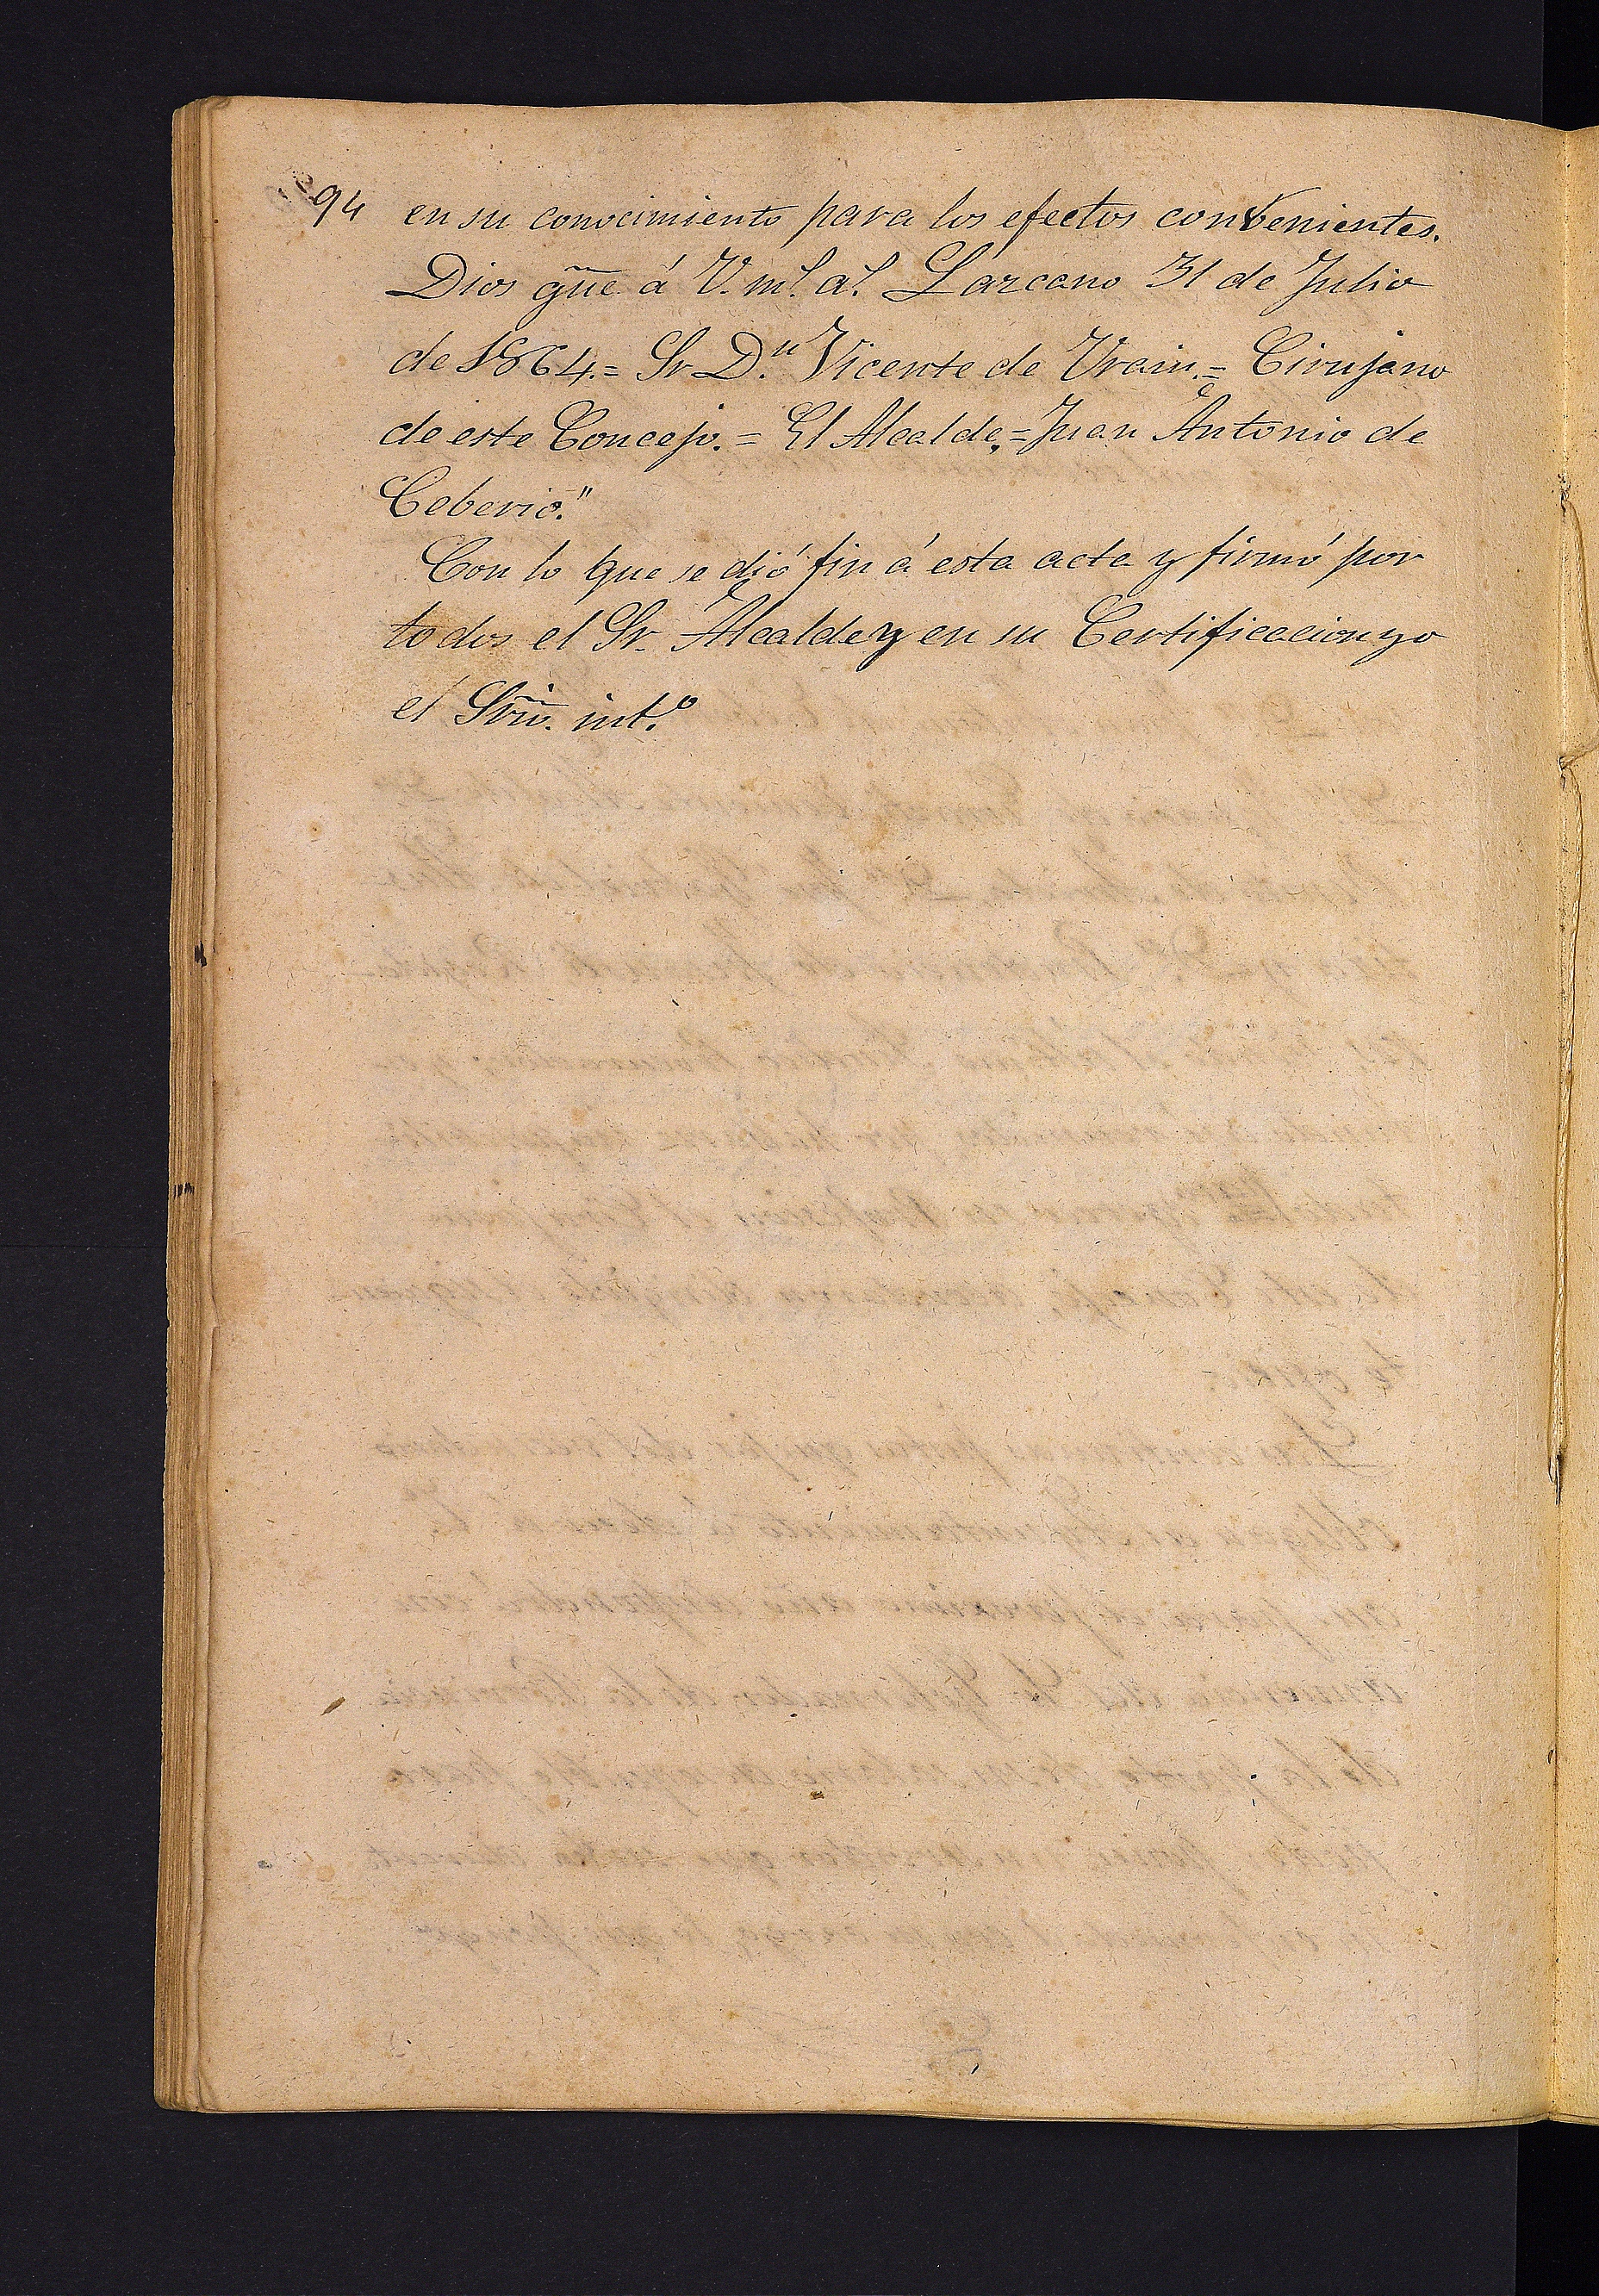 94 en su conocimiento para los efectos convenientes.
Dios gũe á V. m.s a.s Lazcano 31 de Julio
de 1864.= Sr. D.n Vicente de Urain.= Cirujano
de este Concejo.= El Alcalde.= Juan Antonio de
Ceberio."
Con lo que se dió fin á esta acta y firmó por
todos el Sr. Alcalde y en su Certificacion yo
el Srio. int.o